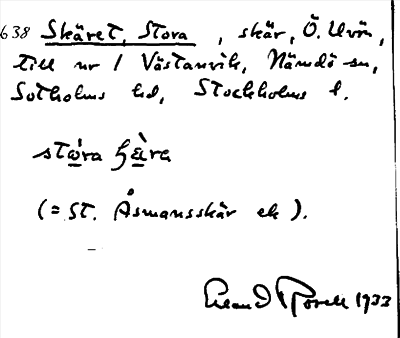 638 Skäret, Stora, skär, Ö. Uvön,
till nr 1 Västanvik, Nämdö sn,
Sotholms hd, Stockholms l.
stωra ʃɛ̀ra
(= St. Åsmansskär ek).
Erland Rosell 1933